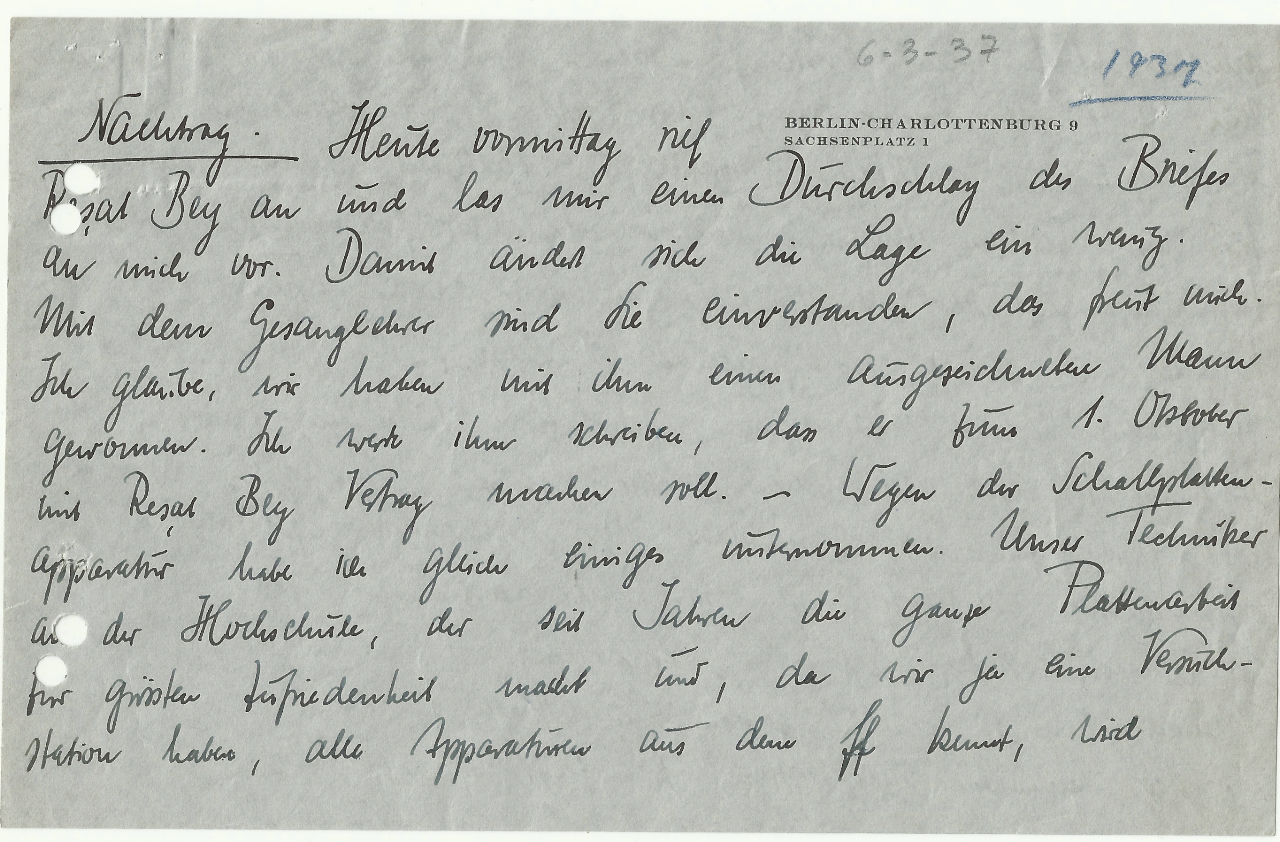 6-3-37
1937
BERLIN-CHARLOTTENBURG 9
SACHSENPLATZ 1
Nachtrag. Heute vormittag rief
Reşat Bey an und las mir einen Durchschlag des Briefes
an mich vor. Damit ändert sich die Lage ein wenig.
Mit dem Gesanglehrer sind Sie einverstanden, das freut mich.
Ich glaube, wir haben mit ihm einen ausgezeichneten Mann
gewonnen. Ich werde ihm schreiben, dass er zum 1. Oktober
mit Reşat Bey Vertrag machen soll. – Wegen der Schallplatten-
apparatur habe ich gleich einiges unternommen. Unser Techniker
an der Hochschule, der seit Jahren die ganze Plattenarbeit
zur grössten Zufriedenheit macht und, da wir ja eine Versuch-
station haben, alle Apparaturen aus dem ff kennt, wird